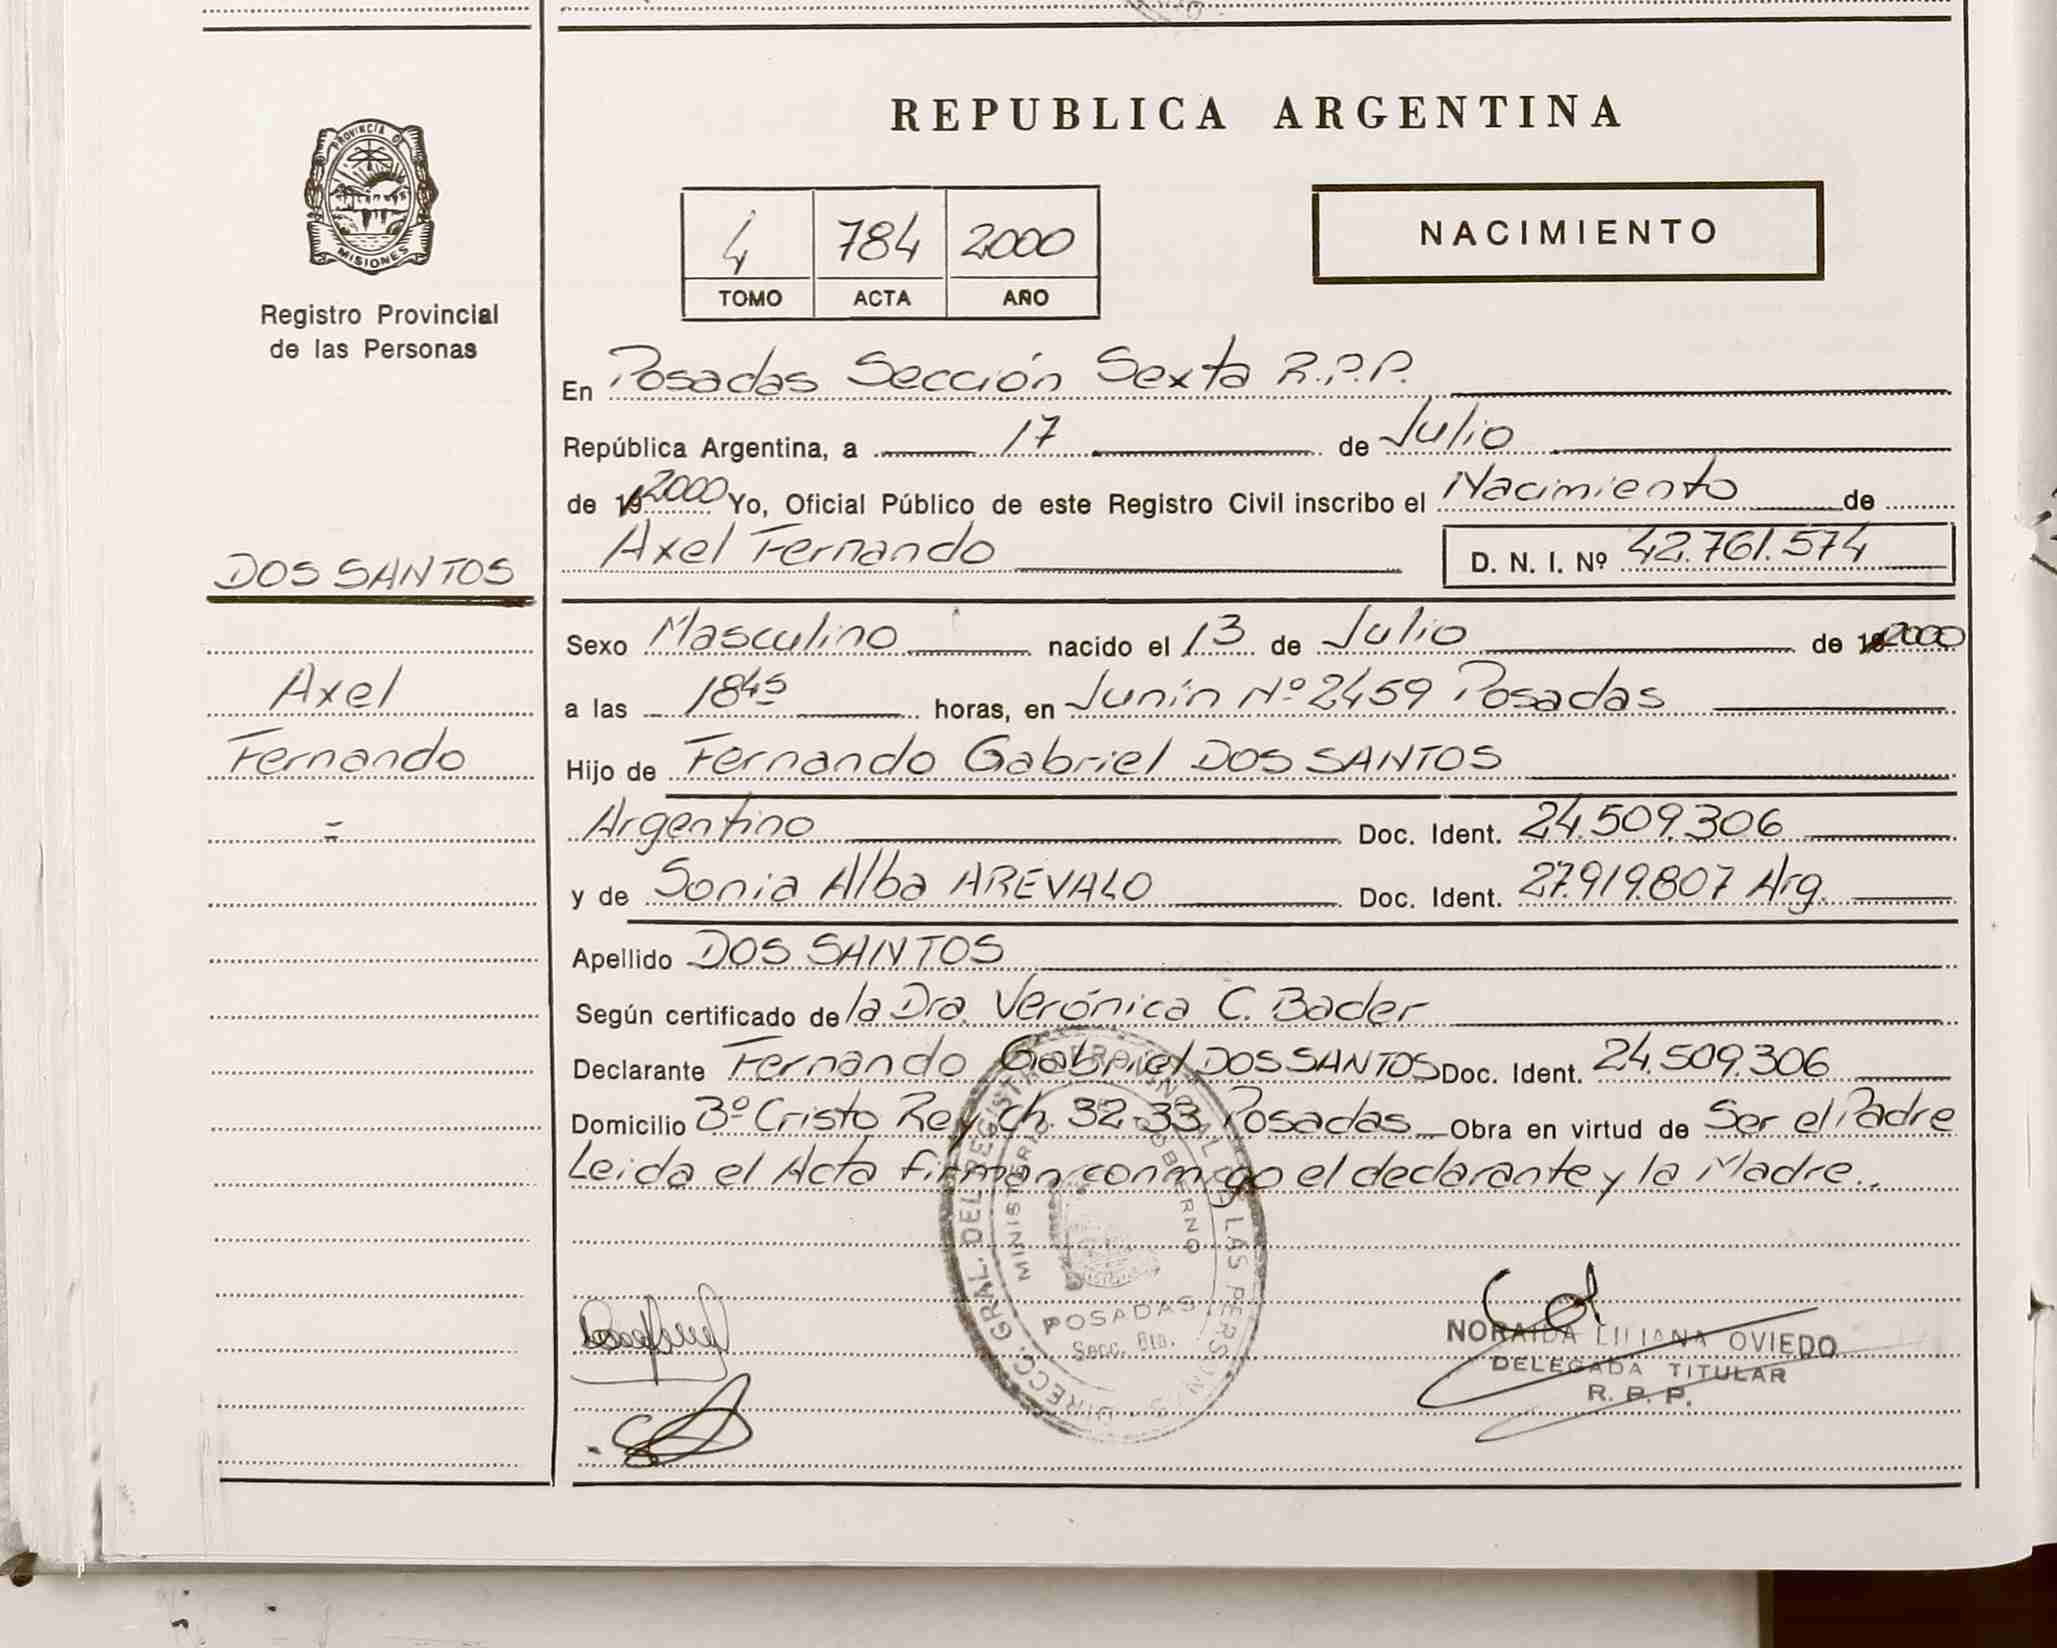 REPUBLICA ARGENTINA
PROVINCIA DE
MISIONES
Registro Provincial
de las Personas
4 784 2000
TOMO ACTA AÑO
NACIMIENTO
En Posadas Sección Sexta R.P.P.
República Argentina, a 17 de Julio
de 19 2000 Yo, Oficial Público de este Registro Civil inscribo el Nacimiento de
DOS SANTOS
Axel Fernando D. N. I. Nº 42.761.574
Sexo Masculino nacido el 13 de Julio de 19 2000
Axel
a las 18 45 horas, en Junín Nº 2459 Posadas
Fernando
Hijo de Fernando Gabriel DOS SANTOS
Argentino Doc. Ident. 24.509.306
y de Sonia Alba AREVALO Doc. Ident. 27.919.807 Arg.
Apellido DOS SANTOS
Según certificado de la Dra. Verónica C. Bader
Declarante Fernando Gabriel DOS SANTOS Doc. Ident. 24.509.306
Domicilio Bº Cristo Rey ch. 32-33 Posadas Obra en virtud de Ser el Padre
Leida el Acta firman conmigo el declarante y la Madre..
DIRECC. GRAL. DEL REGISTRO PROVINCIAL DE LAS PERSONAS
MINISTERIO DE GOBIERNO
POSADAS
Secc. 6ta.
NORAIDA LILIANA OVIEDO
DELEGADA TITULAR
R. P. P.